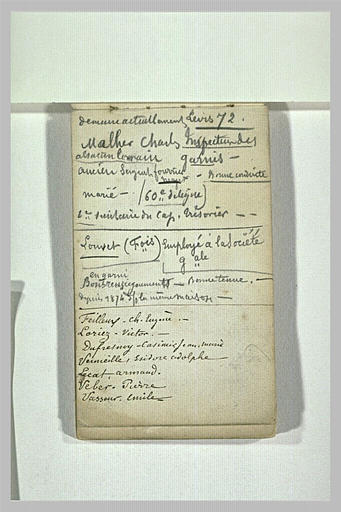 demeure actuellement Levis 72.
Malher Charles Inspecteur des
alsacien lorrain garnis -
ancien Sergent fourrier - Bonne conduite
major
marié - (60e de ligne)
secrétaire du Cap. trésorier - -
Louvet (Fois) Employé à la Société
g ale
en garni
Bons renseignements - Bonne tenue. -
depuis 1874 ds la même maison -
Feilleux - Ch. Eugène. -
Loriez - Victor. -
Dufresnoy - Casimir Jean, marie
Vermeille, Isidore adolphe -
Géat, armand.
Véber - Pierre
Vasseur - emile -